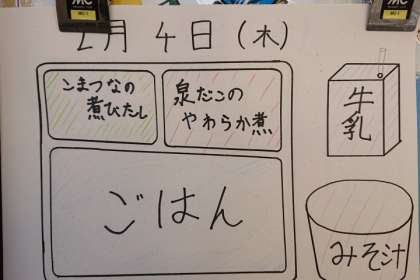 2月4日(木)
こまつなの
煮びたし
泉だこの
やわらか煮
牛乳
ごはん
みそ汁